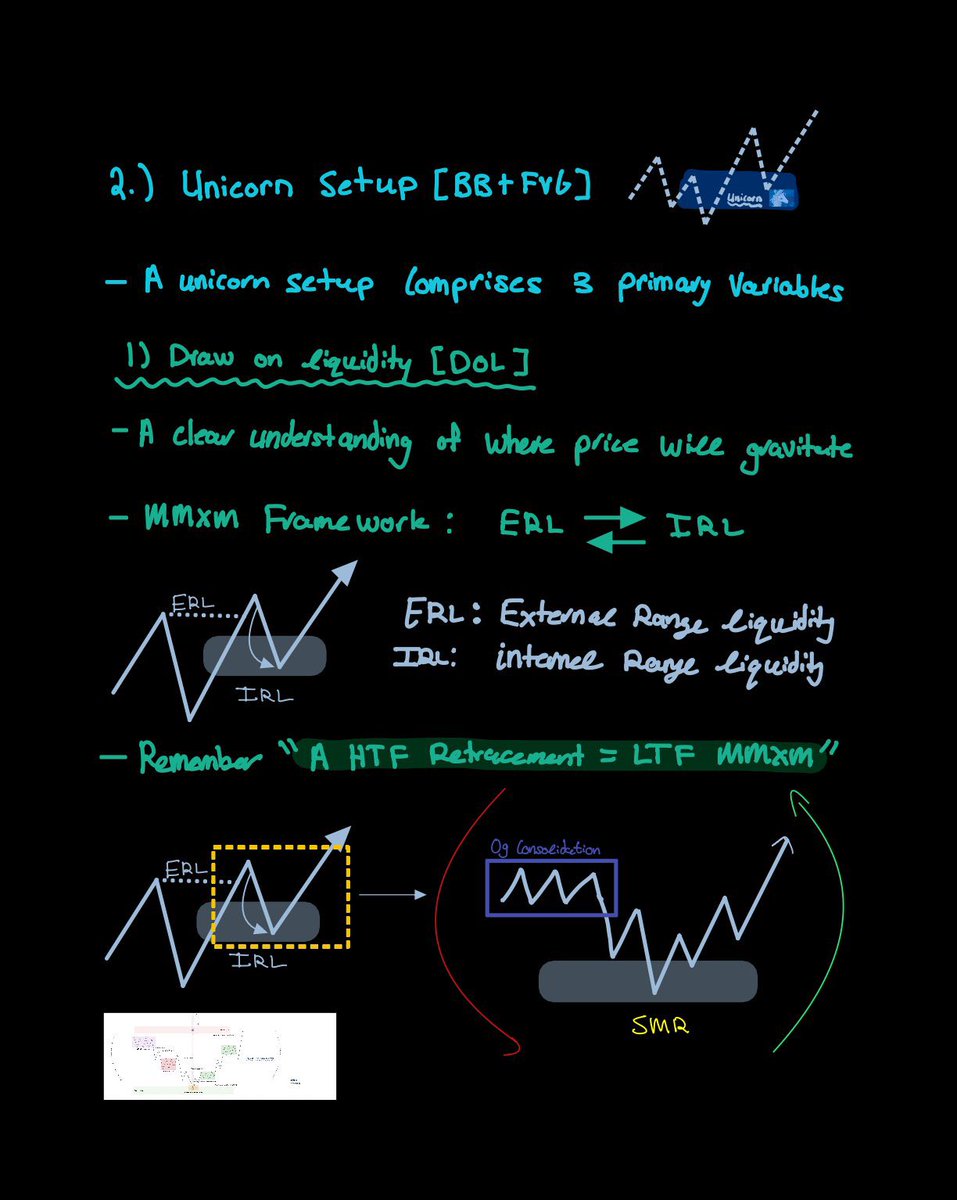 2.) Unicorn Setup [BB+FVG]
Unicorn
- A unicorn setup comprises 3 primary variables
1) Draw on liquidity [DOL]
- A clear understanding of where price will gravitate
- MMXM Framework: ERL IRL
ERL
IRL
ERL: External Range liquidity
IRL: internal Range liquidity
- Remember "A HTF Retracement = LTF MMXM"
Og Consolidation
ERL
IRL
SMR